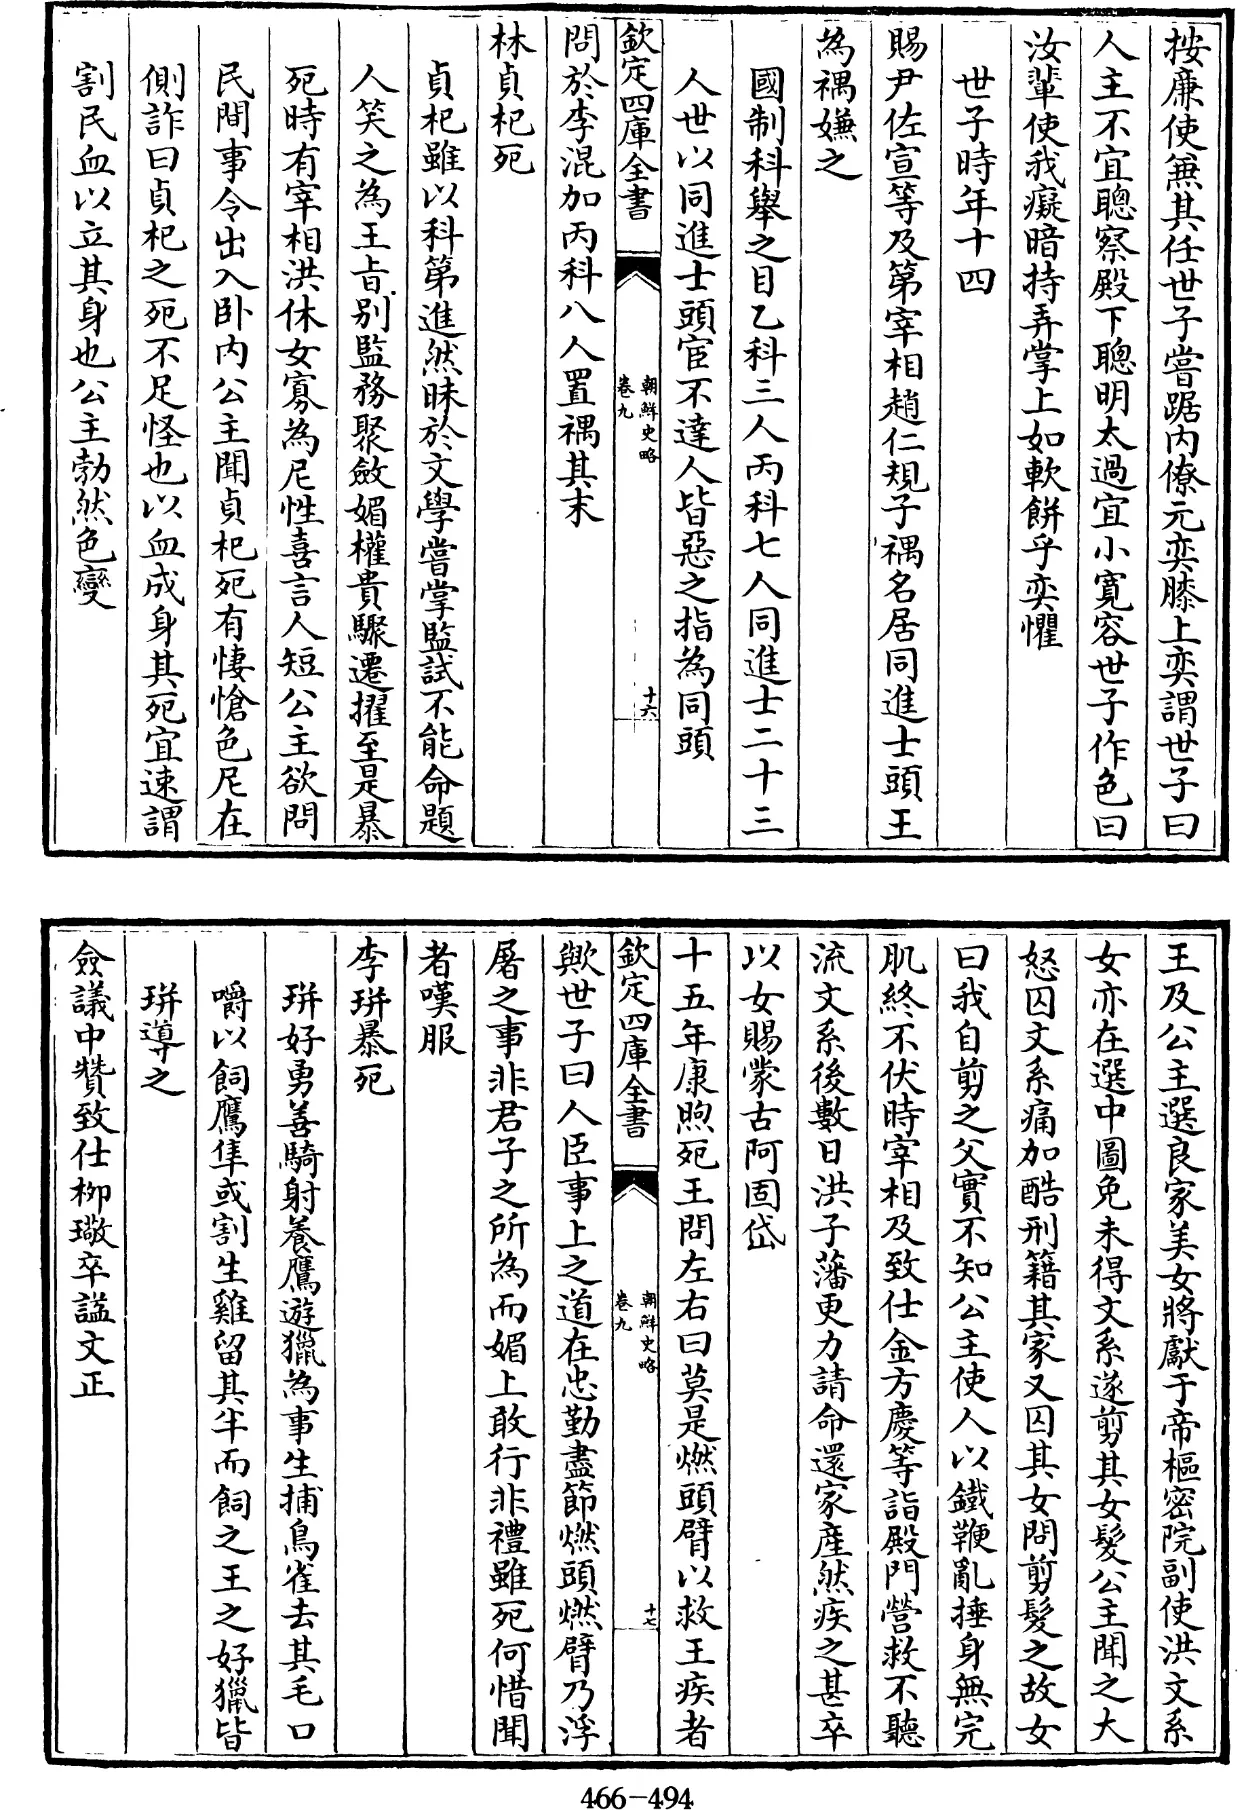 按廉使無其任世子嘗踞内僚元奕膝上奕謂世子曰
人主不宜聰察殿下聰明太過宜小寛容世子作色曰
汝輩使我癡暗持弄掌上如軟餅乎奕懼
世子時年十四
賜尹佐宣等及第宰相趙仁規子禑名居同進士頭王
為禑嫌之
國制科舉之目乙科三人丙科七人同進士二十三
人世以同進士頭宦不達人皆惡之指為同頭
欽定四庫全書
朝鮮史略
卷九
十六
問於李混加丙科八人置禑其末
林貞杞死
貞杞雖以科第進然昧於文學嘗掌監試不能命題
人笑之為王㫖别監務聚斂媚權貴驟遷擢至是暴
死時有宰相洪休女寡為尼性喜言人短公主欲問
民間事令出入卧内公主聞貞杞死有悽愴色尼在
側詐曰貞杞之死不足怪也以血成身其死宜速謂
割民血以立其身也公主勃然色變
王及公主選良家美女將獻于帝樞密院副使洪文系
女亦在選中圖免未得文系遂剪其女髮公主聞之大
怒囚文系痛加酷刑籍其家又囚其女問剪髮之故女
曰我自剪之父實不知公主使人以鐵鞭亂捶身無完
肌終不伏時宰相及致仕金方慶等詣殿門營救不聽
流文系後數日洪子藩更力請命還家産然疾之甚卒
以女賜蒙古阿固岱
十五年康煦死王問左右曰莫是燃頭臂以救王疾者
欽定四庫全書
朝鮮史略
卷九
十七
歟世子曰人臣事上之道在忠勤盡節燃頭燃臂乃浮
屠之事非君子之所為而媚上敢行非禮雖死何惜聞
者嘆服
李琠暴死
琠好勇善騎射養鷹遊獵為事生捕鳥雀去其毛口
嚼以飼鷹隼或割生雞留其半而飼之王之好獵皆
琠導之
僉議中贊致仕栁璥卒諡文正
466-494